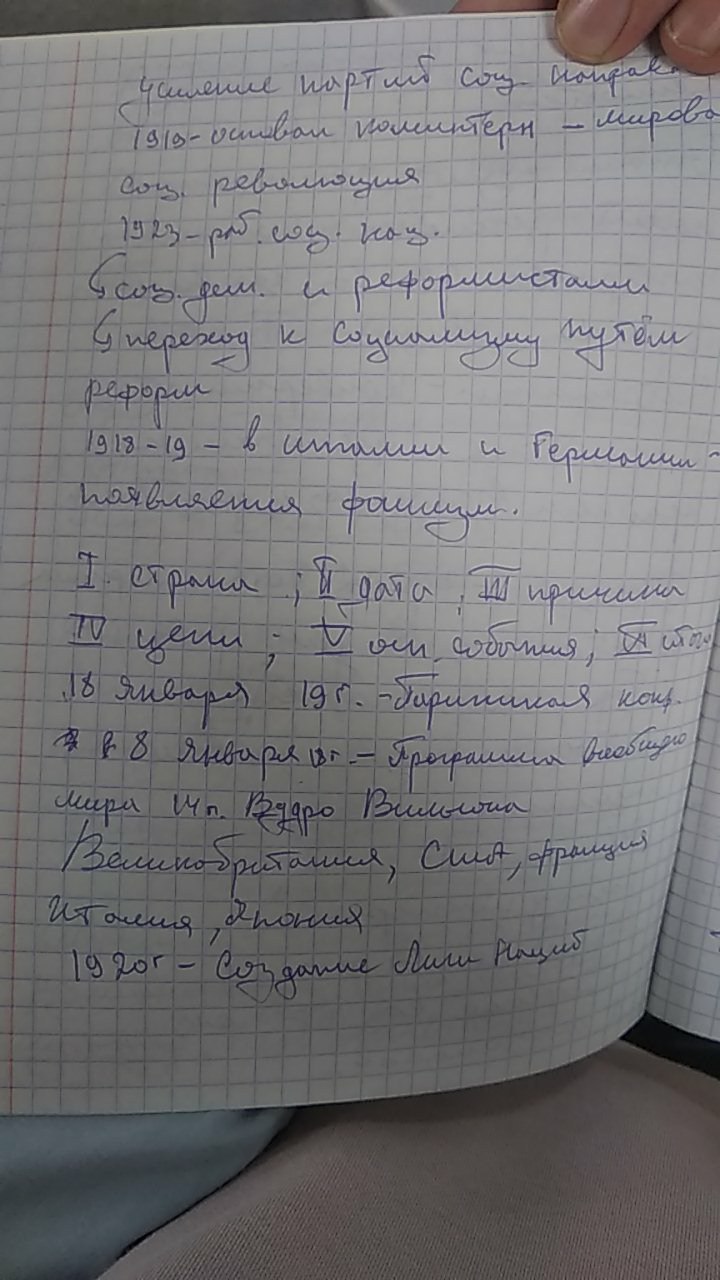 Усиление партий соц. направ
1919-основан коминтерн - мирова
соц. революция
1923-раб. соц. нац.
соц. дем. и реформистами
переход к социализму путём
реформ
1918-19 - в италии и Германии -
появляется фашизм.
I. страна ; II дата ; III причина
IV цели ; V осн. события ; VI итог
18 января 19г. - Парижская конф.
8 января 18г. - Программа всеобщего
мира 14п. Вудро Вильсона
Великобритания, США, франция
Италия, Япония
1920г - Создание Лиги Наций